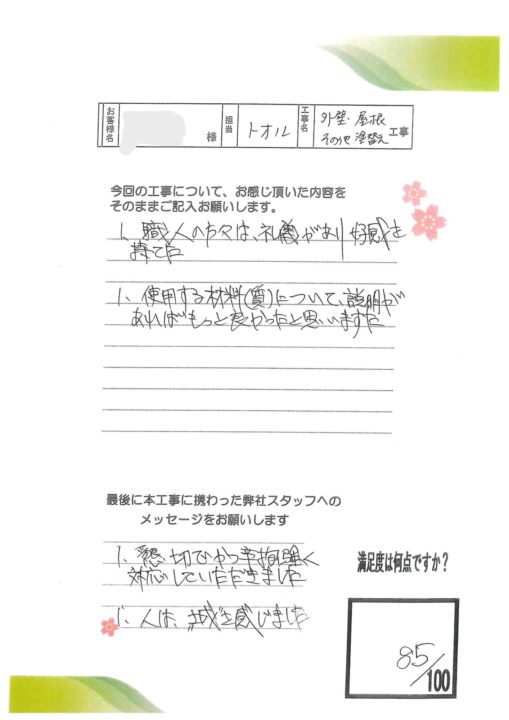 お客様名 様 担当 トオル 工事名 外壁・屋根
その他 塗替え 工事
今回の工事について、お感じ頂いた内容を
そのままご記入お願いします。
1、職人の方々は、礼儀があり好感を
持てた
1、使用する材料(質)について、説明が
あればもっと良かったと思いますた
最後に本工事に携わった弊社スタッフへの
メッセージをお願いします
1、懇切でかつ辛抱強く
対応していただきました
1、人は、誠を感じました
満足度は何点ですか?
85/100